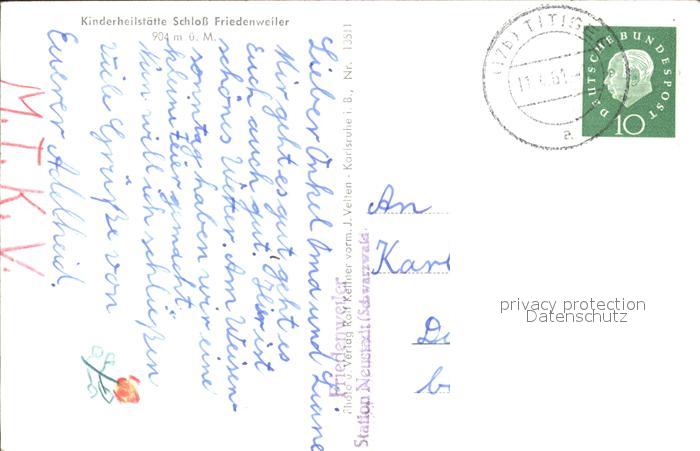 Kinderheilstätte Schloß Friedenweiler
904 m ü. M.
Lieber Onkel Oma und Liane
Mir geht es gut, geht es
euch auch gut. Hier ist
schönes Wetter. Am Weisen-
sonntag haben wir eine
kleine Feier gemacht.
Nun will ich schlüßen
viele Grüße von
Euerer Adelheid.
M.T.K.V.
Photo u. Verlag Rolf Kellner vorm. J. Velten - Karlsruhe i. B., Nr. 13511
Friedenweiler
Station Neustadt (Schwarzwald)
(17b) TITISEE
61
a
DEUTSCHE BUNDESPOST
10
An
Karl
b
privacy protection
Datenschutz